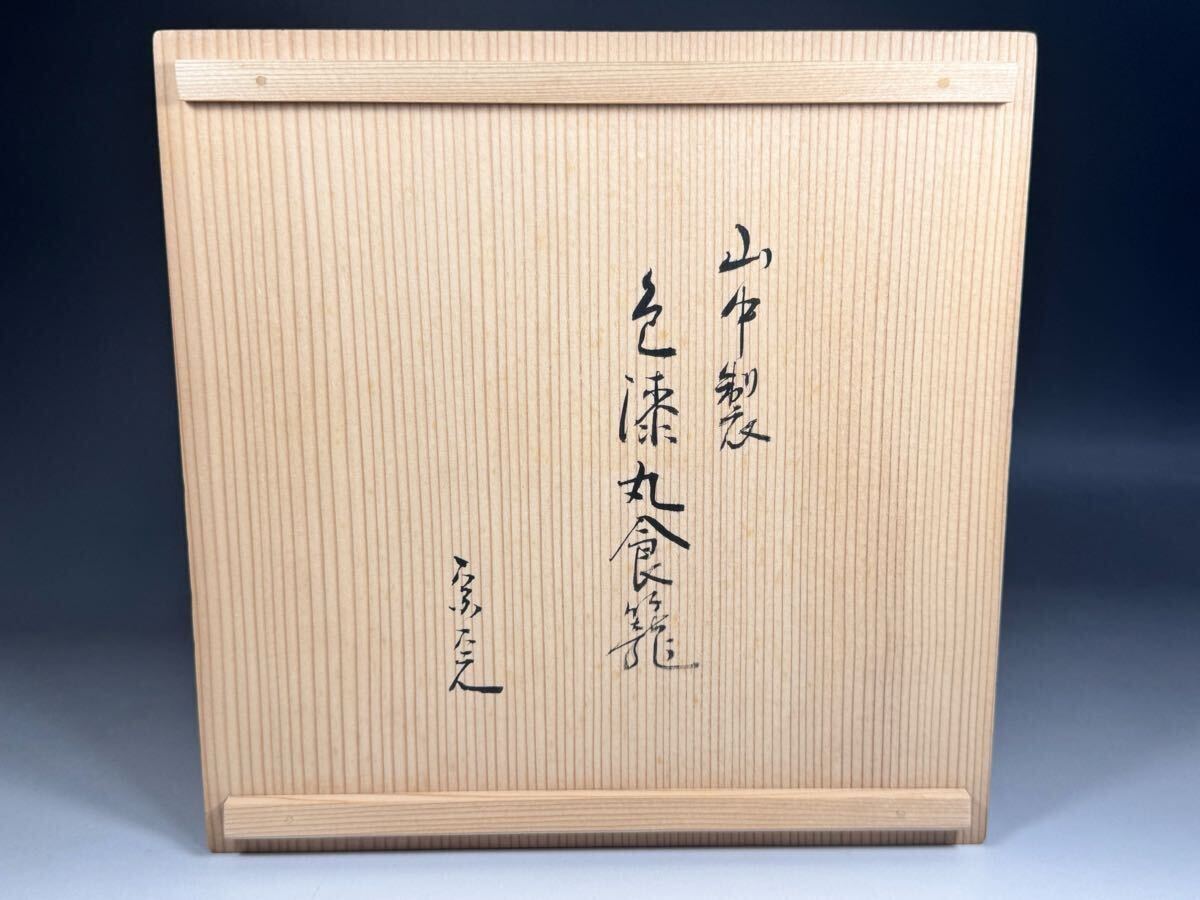 山中製
色漆丸食籠